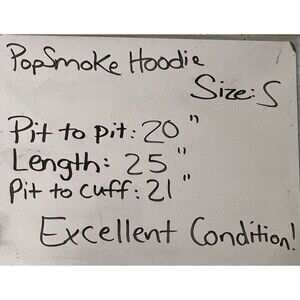 PopSmoke Hoodie
Size: S
Pit to pit: 20"
Length: 25"
Pit to cuff: 21"
Excellent Condition!